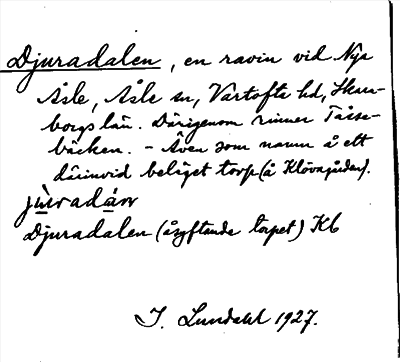 Djuradalen, en ravin vid Nya
Åsle, Åsle sn, Vartofta hd, Skara-
borgs län. Därigenom rinner Tåise-
bäcken. - Även som namn å ett
därinvid beläget torp (å Klövagården).
Djuradalen (åsyftande torpet) Kb
I. Lundahl 1927.